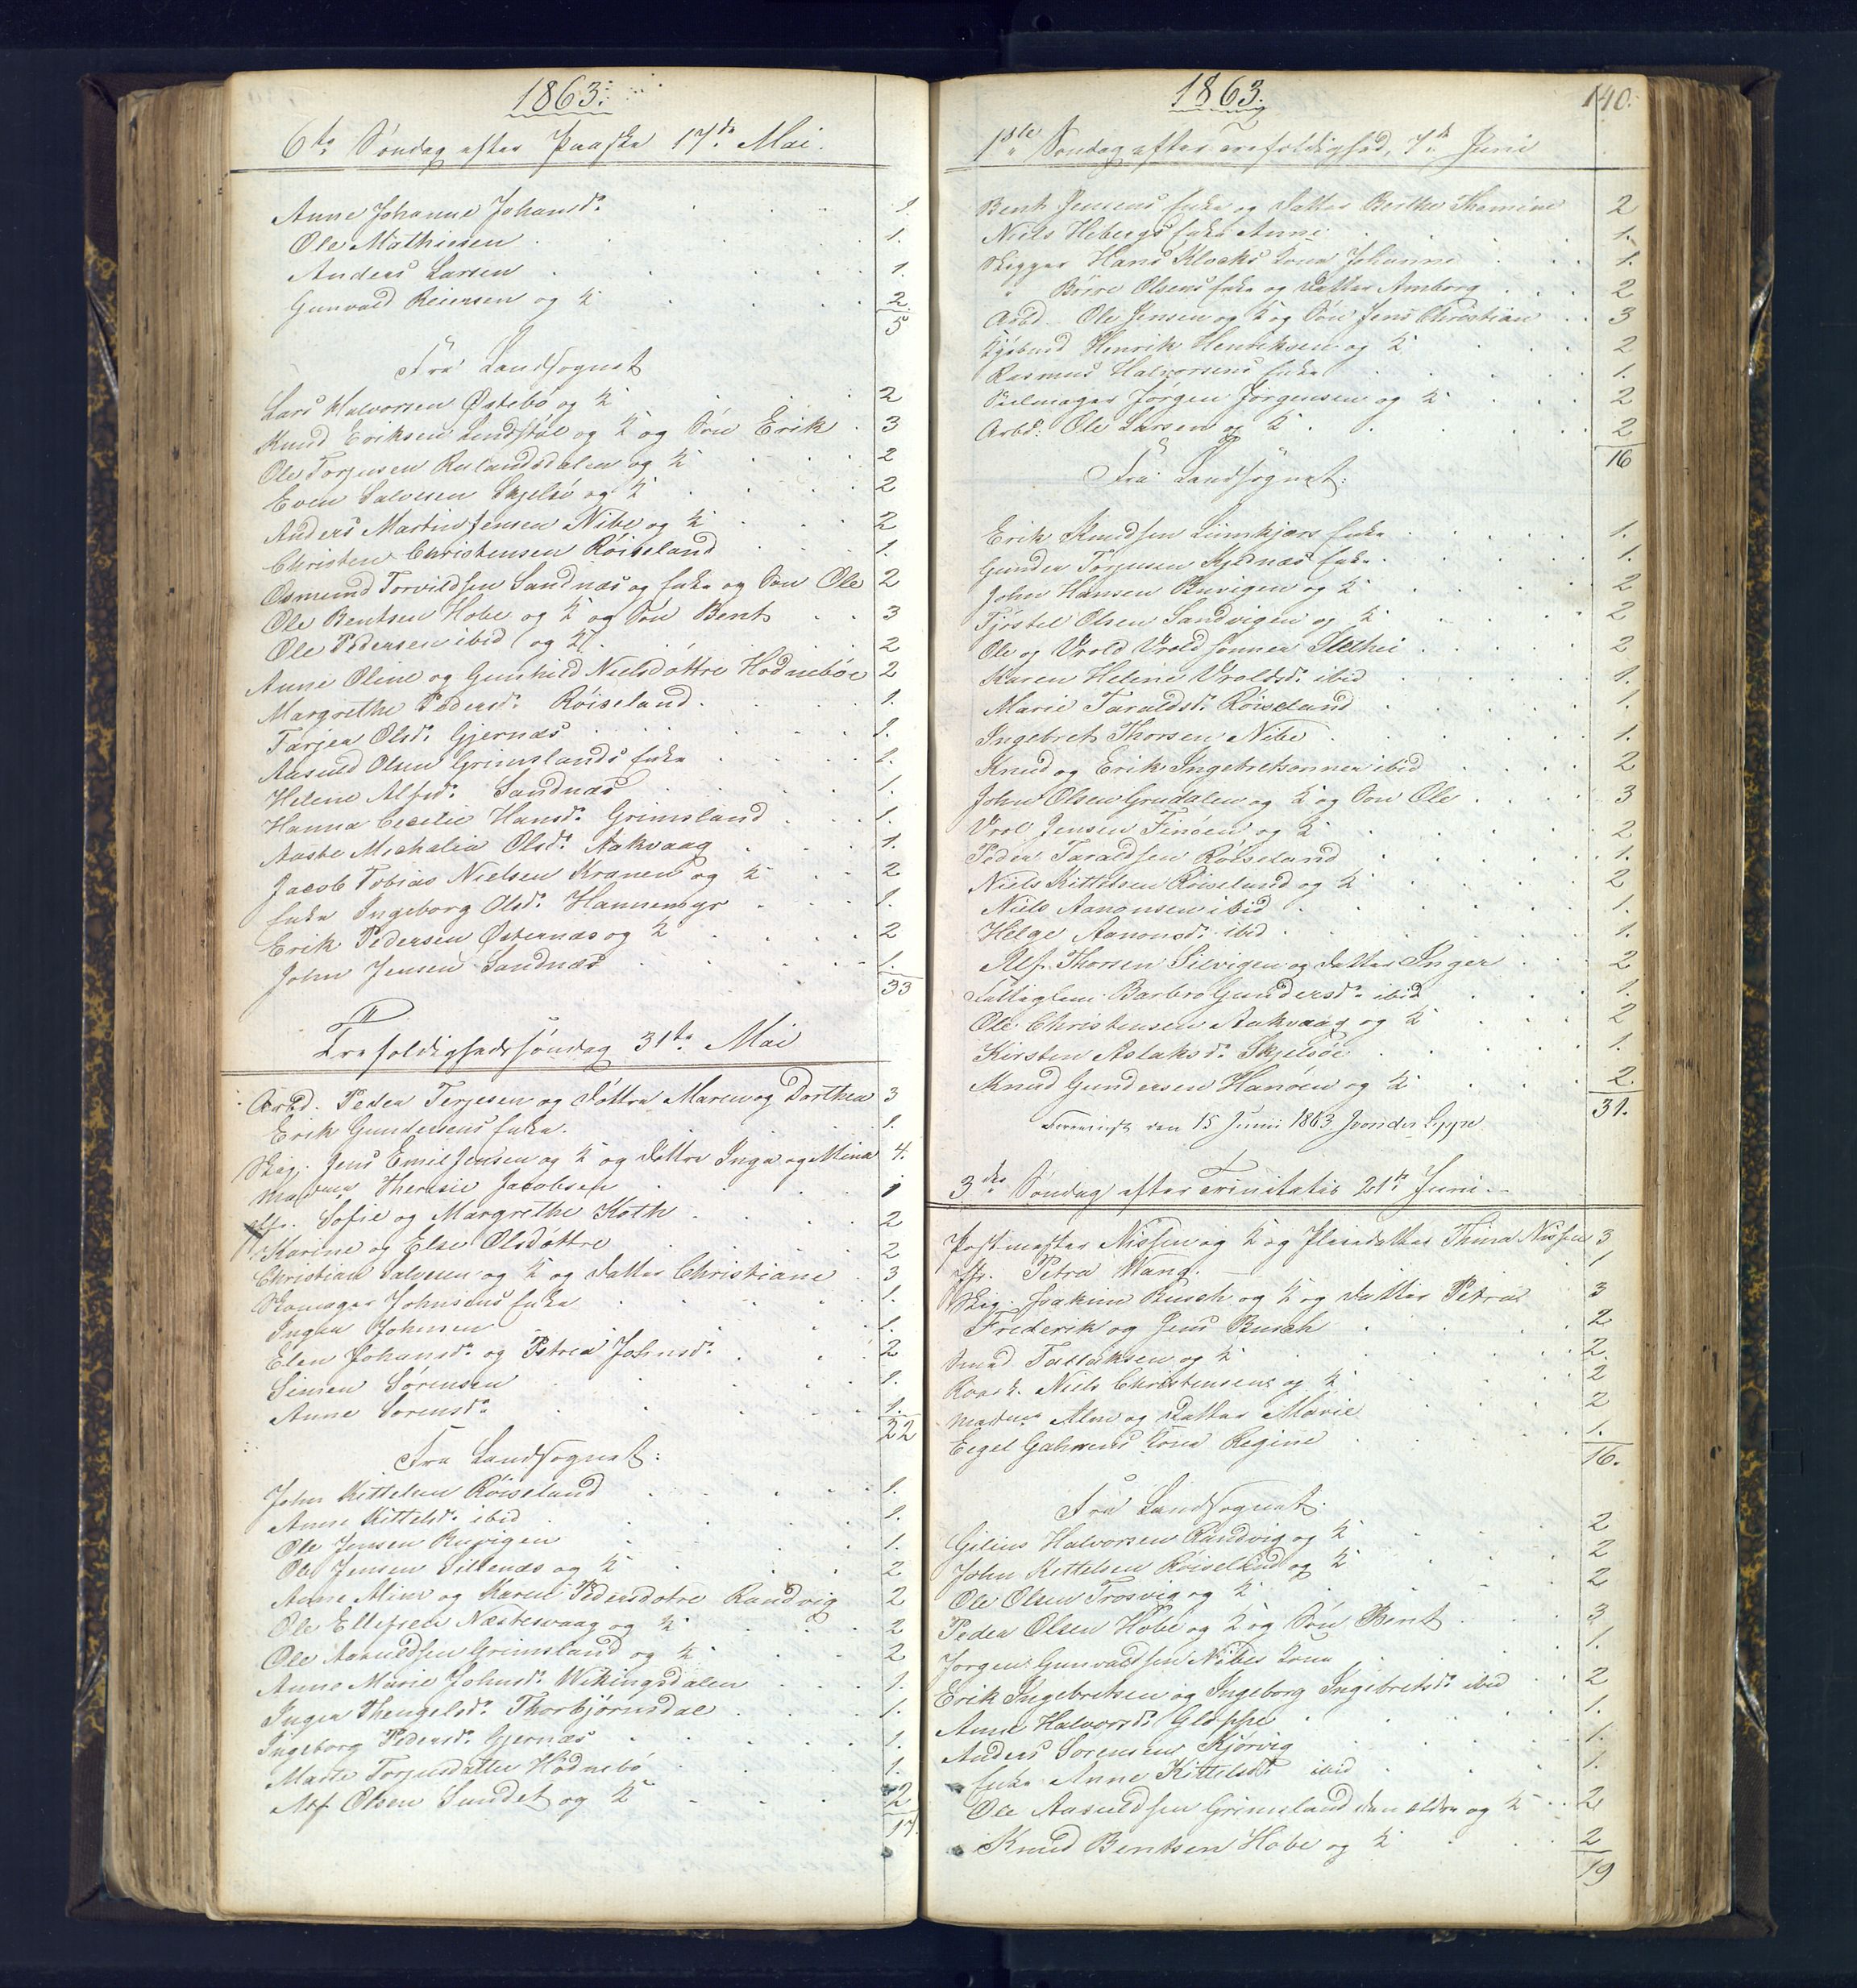 1863.
6te Søndag efter Paaske 17de Mai.
Anne Johanne Johansd. 1.
Ole Mathiesen 1.
Anders Larsen 1.
Gunvald Reiersen og K 2
5
Fra Landsognet
Lars Halvorsen Østebö og K 2
Knud Eriksen Lindstøl og K og Søn Erik 3
Ole Torjusen Rulandsdalen og K 2
Even Salvesen Skjelsö og K 2
Anders Martin Jensen Nibe og K 2
Christen Christensen Röiseland 1.
Osmund Torvildsen Sandnæs og Enke og Søn Ole 2
Ole Bentsen Hobe og K og Søn Bent 3
Ole Pedersen ibid og K 2
Anne Oline og Gunhild Nielsdøttre Hodnebøe 2
Margrethe Pedersd. Röiseland 1.
Tarjer Olsd. Gjernæs 1.
Aasuld Olsen Grimslands Enke 1.
Helene Alfsd. Sandnæs 1.
Hanna Cecelie Hansd. Grimsland 1.
Aaste Michalia Olsd. Aakvaag 1.
Jacob Tobias Nielsen Kranen og K 2
Enke Ingeborg Olsd. Hannemyr 1.
Erik Pedersen Østernæs og K 2
John Jensen Sandnæs 1.
33
Trefoldighedssøndag 31te Mai
Arbd. Peder Terjesen og Døttre Maren og Dorthea 3
Erik Gundersens Enke. 1.
Skip. Jens Emil Jensen og K og Døttre Inga og Mina 4.
Madme Theresie Jacobsen 1
Jfr. Sofie og Margrethe Koth 2
Karine og Else Olsdöttre 2
Christian Salvesen og K og Datter Christiane 3
Skomager Johnsens Enke 1.
Inger Johnsen 1.
Elen Johansd. og Petrea Johnsd. 2
Simen Sörensen 1.
Anne Sorensd. 1.
22
Fra Landsognet:
John Kittelsen Röiseland 1.
Anne Kittelsd. ibid 1.
Ole Jensen Buvigen 1.
Ole Jensen Sillenæs og K 2
Anne Mine og Karen Pedersdotre Randvig 2
Ole Ellefsen Næstesvaag og K 2
Ole Aasuldsen Grimsland og K 2
Anne Marie Johnsd. Wikingsdalen 1.
Inger Thengelsd. Thorbjörnsdal 1.
Ingeborg Pedersd. Gjernæs 1.
Marte Torjusdatter Hodnebö 1.
Alf Olsen Sundet og K 2
17.
1863.
140.
1ste Søndag efter Trefoldighed, 7de Juni
Bent Jensens Enke og Datter Berthe Thomine 2
Niels Hebergs Enke Anne 1.
Skipper Hans Klocks Kone Johanne 1.
" Börre Olsens Enke og Datter Amborg 2
Arbd. Ole Jensen og K og Søn Jens Christian 3
Kjöbmd Henrik Henriksen og K 2
Rasmus Halvorsens Enke 1.
Seilmager Jörgen Jörgensen og K 2
Arbd: Ole Larsen og K 2
16
Fra Landsognet:
Erik Knudsen Limkjærs Enke 1.
Gunder Torjusen Gjernæs Enke 1.
John Hansen Buvigen og K 2
Tjöstel Olsen Sandvigen og K 2
Ole og Vrold Vroldsønner Hethei 2
Karen Helene Vroldsd. ibid 1.
Marie Taraldsd. Röiseland 1.
Ingebret Thorsen Nibe 1.
Knud og Erik Ingebretsonner ibid 2
John Olsen Grudalen og K og Søn Ole 3
Vrol Jensen Finöen og K 2
Peder Taraldsen Röiseland 1.
Niels Kittelsen Röiseland og K 2
Niels Aanonsen ibid 1.
Helge Aanonsd. ibid 1.
Alf Thorsen Silvigen og Datter Inger 2
Fattiglem Barbro Gundersd. ibid 1.
Ole Christensen Aakvaag og K 2
Kirsten Aslaksd. Skjelsöe 1.
Knud Gundersen Hanöen og K 2
31.
den 15 Junii 1863 von der Lippe
3die Søndag efter Trinitatis 21de Juni.
Postmester Nissen og K og Pleiedatter Thina Nissen 3
Jfr. Petra Wang. 1
Skip. Joakim Busch og K og Datter Petra 3
Frederik og Jens Busch 2
Smed Tallaksen og K 2.
Niels Christensen og K 2
Madme Alm og Datter Marie 2
Eegel Gahrens Kone Regine 1.
16.
Fra Landsognet.
Gilius Halvorsen Randvig og K 2
John Kittelsen Röiseland og K 2
Ole Olsen Trosvig og K 2
Peder Olsen Hobe og K og Søn Bent 3
Jorgen Gunvaldsen Nibes Kone 1.
Erik Ingebretsen og Ingeborg Ingebretsd. ibid 2
Anne Halvorsd. Gloppe 1.
Anders Sorensen Kjörvig 1.
Enke Anne Kittelsd. ibid 1.
Ole Aasuldsen Grimsland den ældre og K 2
Knud Bentsen Hobe og K 2
19